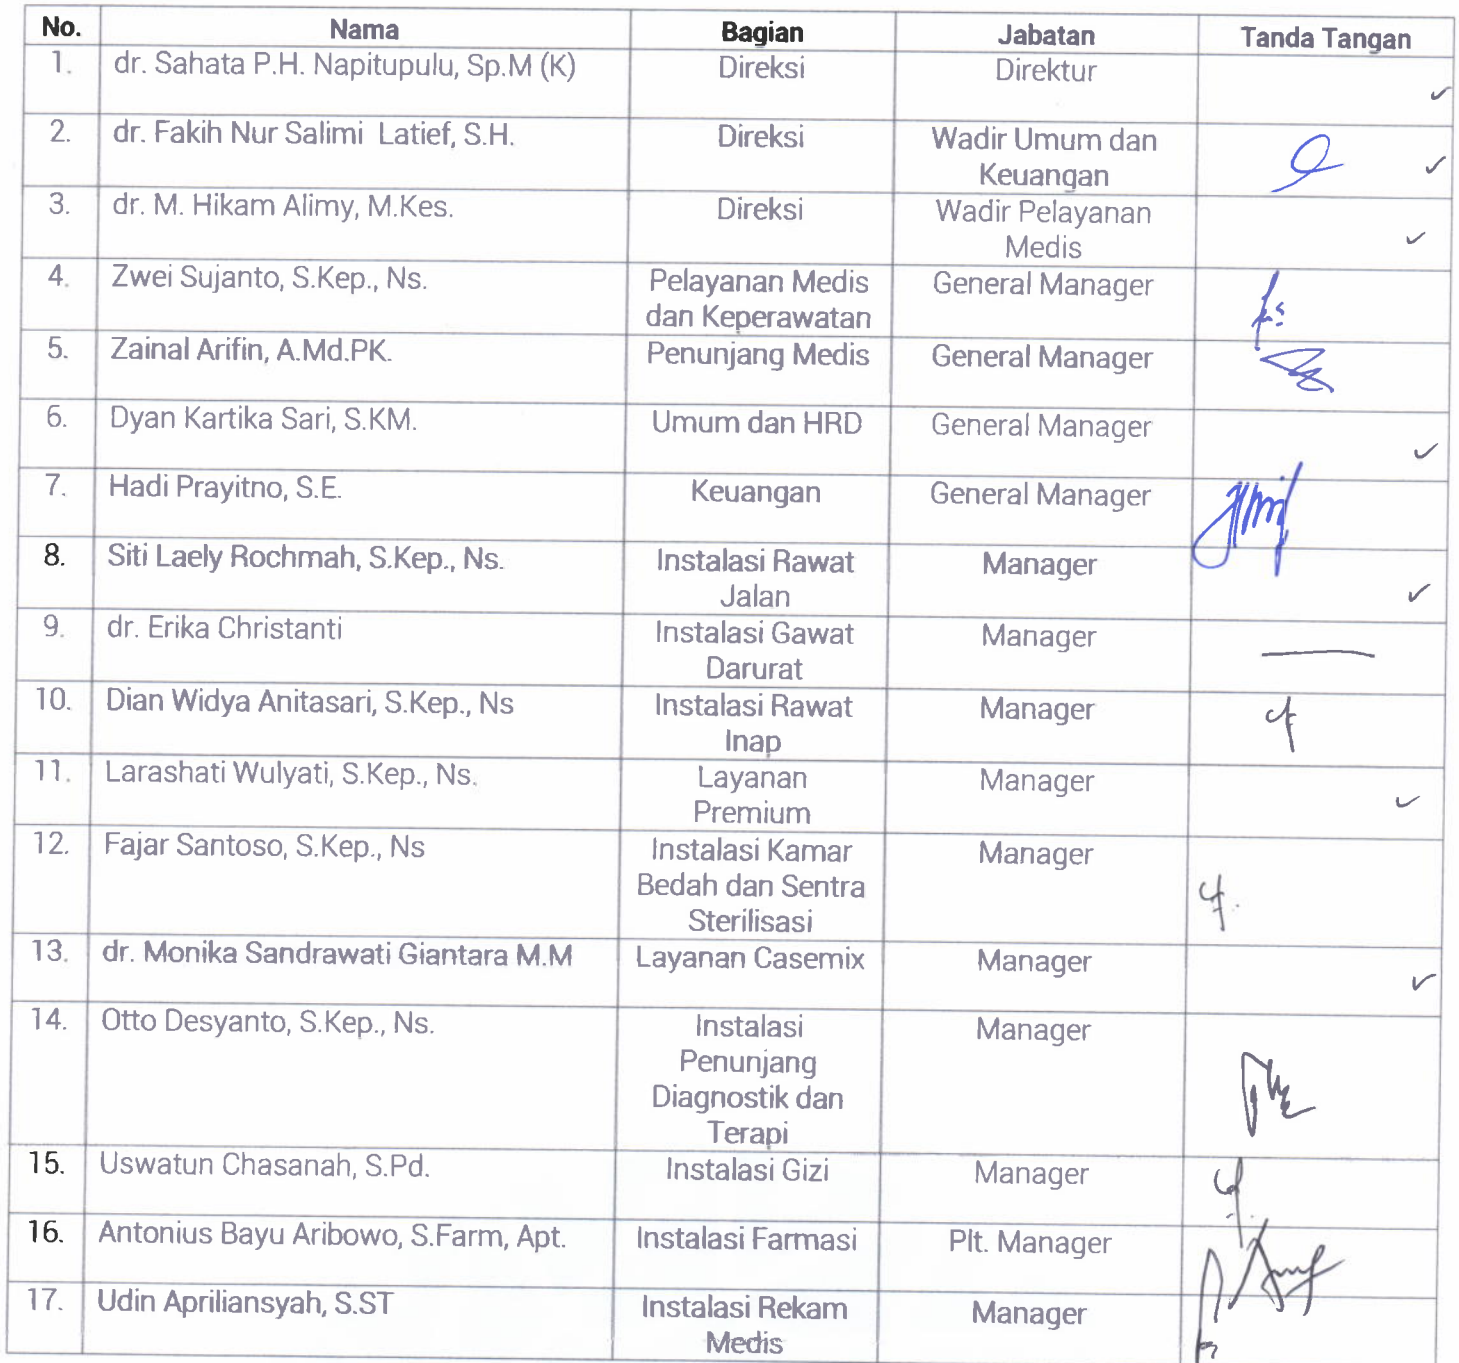 No. Nama Bagian Jabatan Tanda Tangan
1. dr. Sahata P.H. Napitupulu, Sp.M (K) Direksi Direktur
2. dr. Fakih Nur Salimi Latief, S.H. Direksi Wadir Umum dan
Keuangan
3. dr. M. Hikam Alimy, M.Kes. Direksi Wadir Pelayanan
Medis
4. Zwei Sujanto, S.Kep., Ns. Pelayanan Medis General Manager
dan Keperawatan
5. Zainal Arifin, A.Md.PK. Penunjang Medis General Manager
6. Dyan Kartika Sari, S.KM. Umum dan HRD General Manager
7. Hadi Prayitno, S.E. Keuangan General Manager
8. Siti Laely Rochmah, S.Kep., Ns. Instalasi Rawat Manager
Jalan
9. dr. Erika Christanti Instalasi Gawat Manager
Darurat
10. Dian Widya Anitasari, S.Kep., Ns Instalasi Rawat Manager
Inap
11. Larashati Wulyati, S.Kep., Ns. Layanan Manager
Premium
12. Fajar Santoso, S.Kep., Ns Instalasi Kamar Manager
Bedah dan Sentra
Sterilisasi
13. dr. Monika Sandrawati Giantara M.M Layanan Casemix Manager
14. Otto Desyanto, S.Kep., Ns. Instalasi Manager
Penunjang
Diagnostik dan
Terapi
15. Uswatun Chasanah, S.Pd. Instalasi Gizi Manager
16. Antonius Bayu Aribowo, S.Farm, Apt. Instalasi Farmasi Plt. Manager
17. Udin Apriliansyah, S.ST Instalasi Rekam Manager
Medis